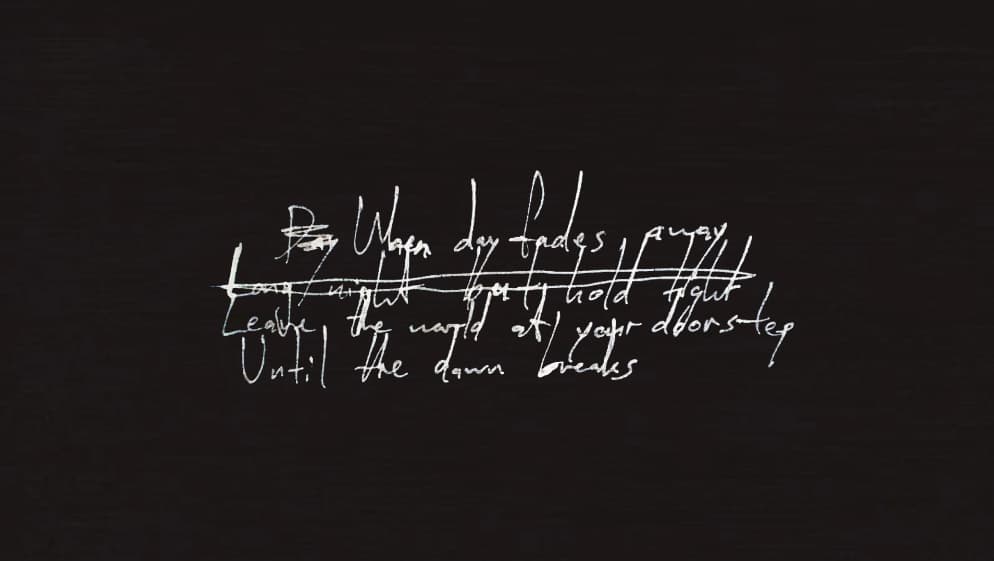 Day When day fades away
Long night but hold tight
Leave the world at your doorstep
Until the dawn breaks